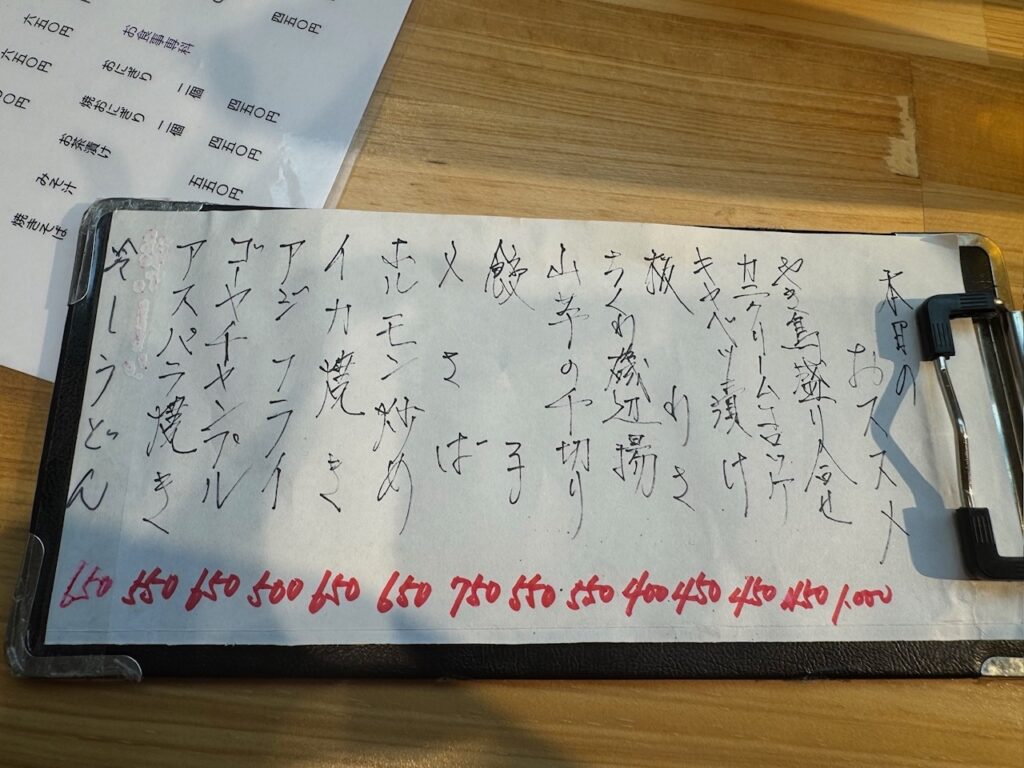 本日の
おススメ
やき鳥盛り合せ 1,000
カニクリームコロッケ 450
キャベツ漬け 450
板わさ 450
ちくわ磯辺揚 400
山芋の千切り 550
餃子 550
〆さば 750
ホルモン炒め 650
イカ焼き 650
アジフライ 500
ゴーヤチャンプル 650
アスパラ焼き 550
冷しうどん 650
四五〇円
お食事専科
おにぎり 二個 四五〇円
焼おにぎり 二個 四五〇円
お茶漬け 五五〇円
みそ汁
焼きそば
六五〇円
六五〇円
〇円